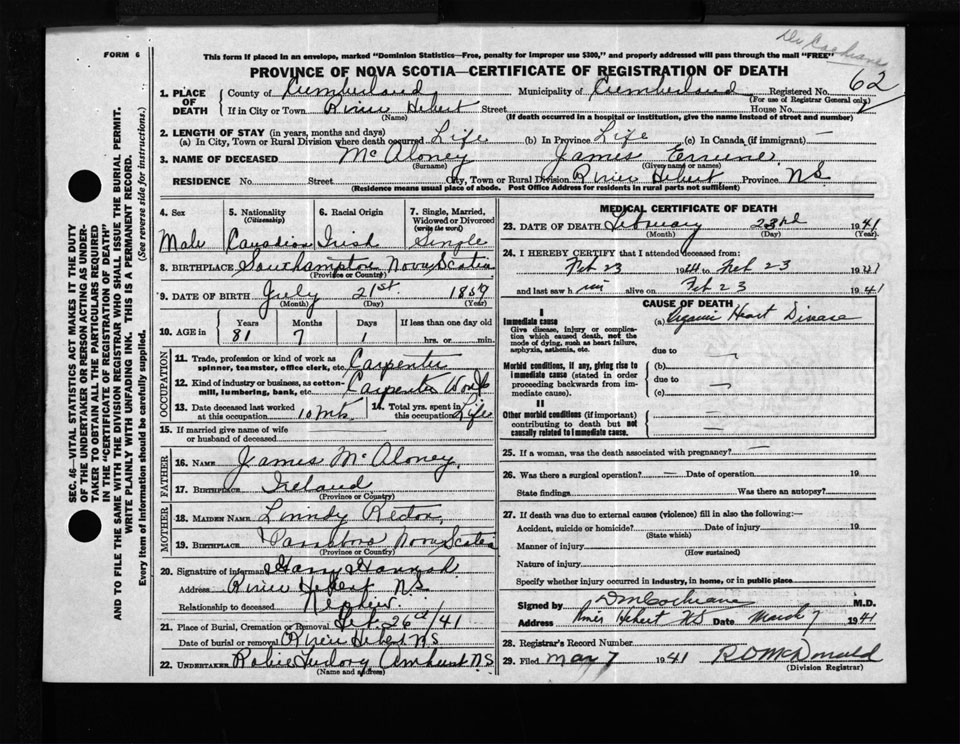 Dr Cochrane
FORM 6
This form if placed in an envelope, marked "Dominion Statistics—Free, penalty for improper use $300," and properly addressed will pass through the mail "FREE"
PROVINCE OF NOVA SCOTIA—CERTIFICATE OF REGISTRATION OF DEATH
62
1. PLACE OF DEATH County of Cumberland Municipality of Cumberland Registered No.
(For use of Registrar General only)
If in City or Town River Hebert Street House No.
(Name) (If death occurred in a hospital or institution, give the name instead of street and number)
2. LENGTH OF STAY (in years, months and days)
(a) In City, Town or Rural Division where death occurred Life (b) In Province Life (c) In Canada (if immigrant) —
3. NAME OF DECEASED McAloney James
(Surname) (Given name or names)
RESIDENCE No. Street City, Town or Rural Division River Hebert Province NS
(Residence means usual place of abode. Post Office Address for residents in rural parts not sufficient)
4. Sex 5. Nationality (Citizenship) 6. Racial Origin 7. Single, Married, Widowed or Divorced (write the word)
Male Canadian Irish Single
8. BIRTHPLACE Southampton Nova Scotia
(Province or Country)
9. DATE OF BIRTH July 21st. 1859
(Month) (Day) (Year)
10. AGE in Years Months Days If less than one day old
81 7 1 hrs. or min.
OCCUPATION
11. Trade, profession or kind of work as spinner, teamster, office clerk, etc. Carpenter
12. Kind of industry or business, as cotton-mill, lumbering, bank, etc. Carpenter Work
13. Date deceased last worked at this occupation 10 mts 14. Total yrs. spent in this occupation Life
15. If married give name of wife or husband of deceased
FATHER
16. NAME James McAloney
17. BIRTHPLACE Ireland
(Province or Country)
MOTHER
18. MAIDEN NAME
19. BIRTHPLACE Parrsboro Nova Scotia
(Province or Country)
20. Signature of informant Harry Hannah
Address River Hebert NS
Relationship to deceased Nephew
21. Place of Burial, Cremation or Removal Feb. 26th/41
Date of burial or removal River Hebert NS
22. UNDERTAKER Amherst NS
(Name and address)
MEDICAL CERTIFICATE OF DEATH
23. DATE OF DEATH February 23rd 1941
(Month) (Day) (Year)
24. I HEREBY CERTIFY that I attended deceased from:
Feb 23 1941 to Feb 23 1941
and last saw him alive on Feb 23 1941
CAUSE OF DEATH
I
Immediate cause (a) Organic Heart Disease
Give disease, injury or complication which caused death, not the mode of dying, such as heart failure, asphyxia, asthenia, etc.
due to —
Morbid conditions, if any, giving rise to immediate cause (stated in order proceeding backwards from immediate cause).
(b)
due to —
(c)
II
Other morbid conditions (if important) contributing to death but not causally related to immediate cause.
25. If a woman, was the death associated with pregnancy? —
26. Was there a surgical operation? — Date of operation 19
State findings Was there an autopsy?
27. If death was due to external causes (violence) fill in also the following:—
Accident, suicide or homicide? Date of injury 19
(State which)
Manner of injury
(How sustained)
Nature of injury
Specify whether injury occurred in industry, in home, or in public place
Signed by DM Cochrane M.D.
Address River Hebert NS Date March 7 1941
28. Registrar's Record Number
29. Filed Mar 7 1941 R D McDonald
(Division Registrar)
SEC. 46—VITAL STATISTICS ACT MAKES IT THE DUTY
OF THE UNDERTAKER OR PERSON ACTING AS UNDER-
TAKER TO OBTAIN ALL THE PARTICULARS REQUIRED
IN THE "CERTIFICATE OF REGISTRATION OF DEATH"
AND TO FILE THE SAME WITH THE DIVISION REGISTRAR WHO SHALL ISSUE THE BURIAL PERMIT.
WRITE PLAINLY WITH UNFADING INK. THIS IS A PERMANENT RECORD.
Every item of information should be carefully supplied. (See reverse side for instructions.)